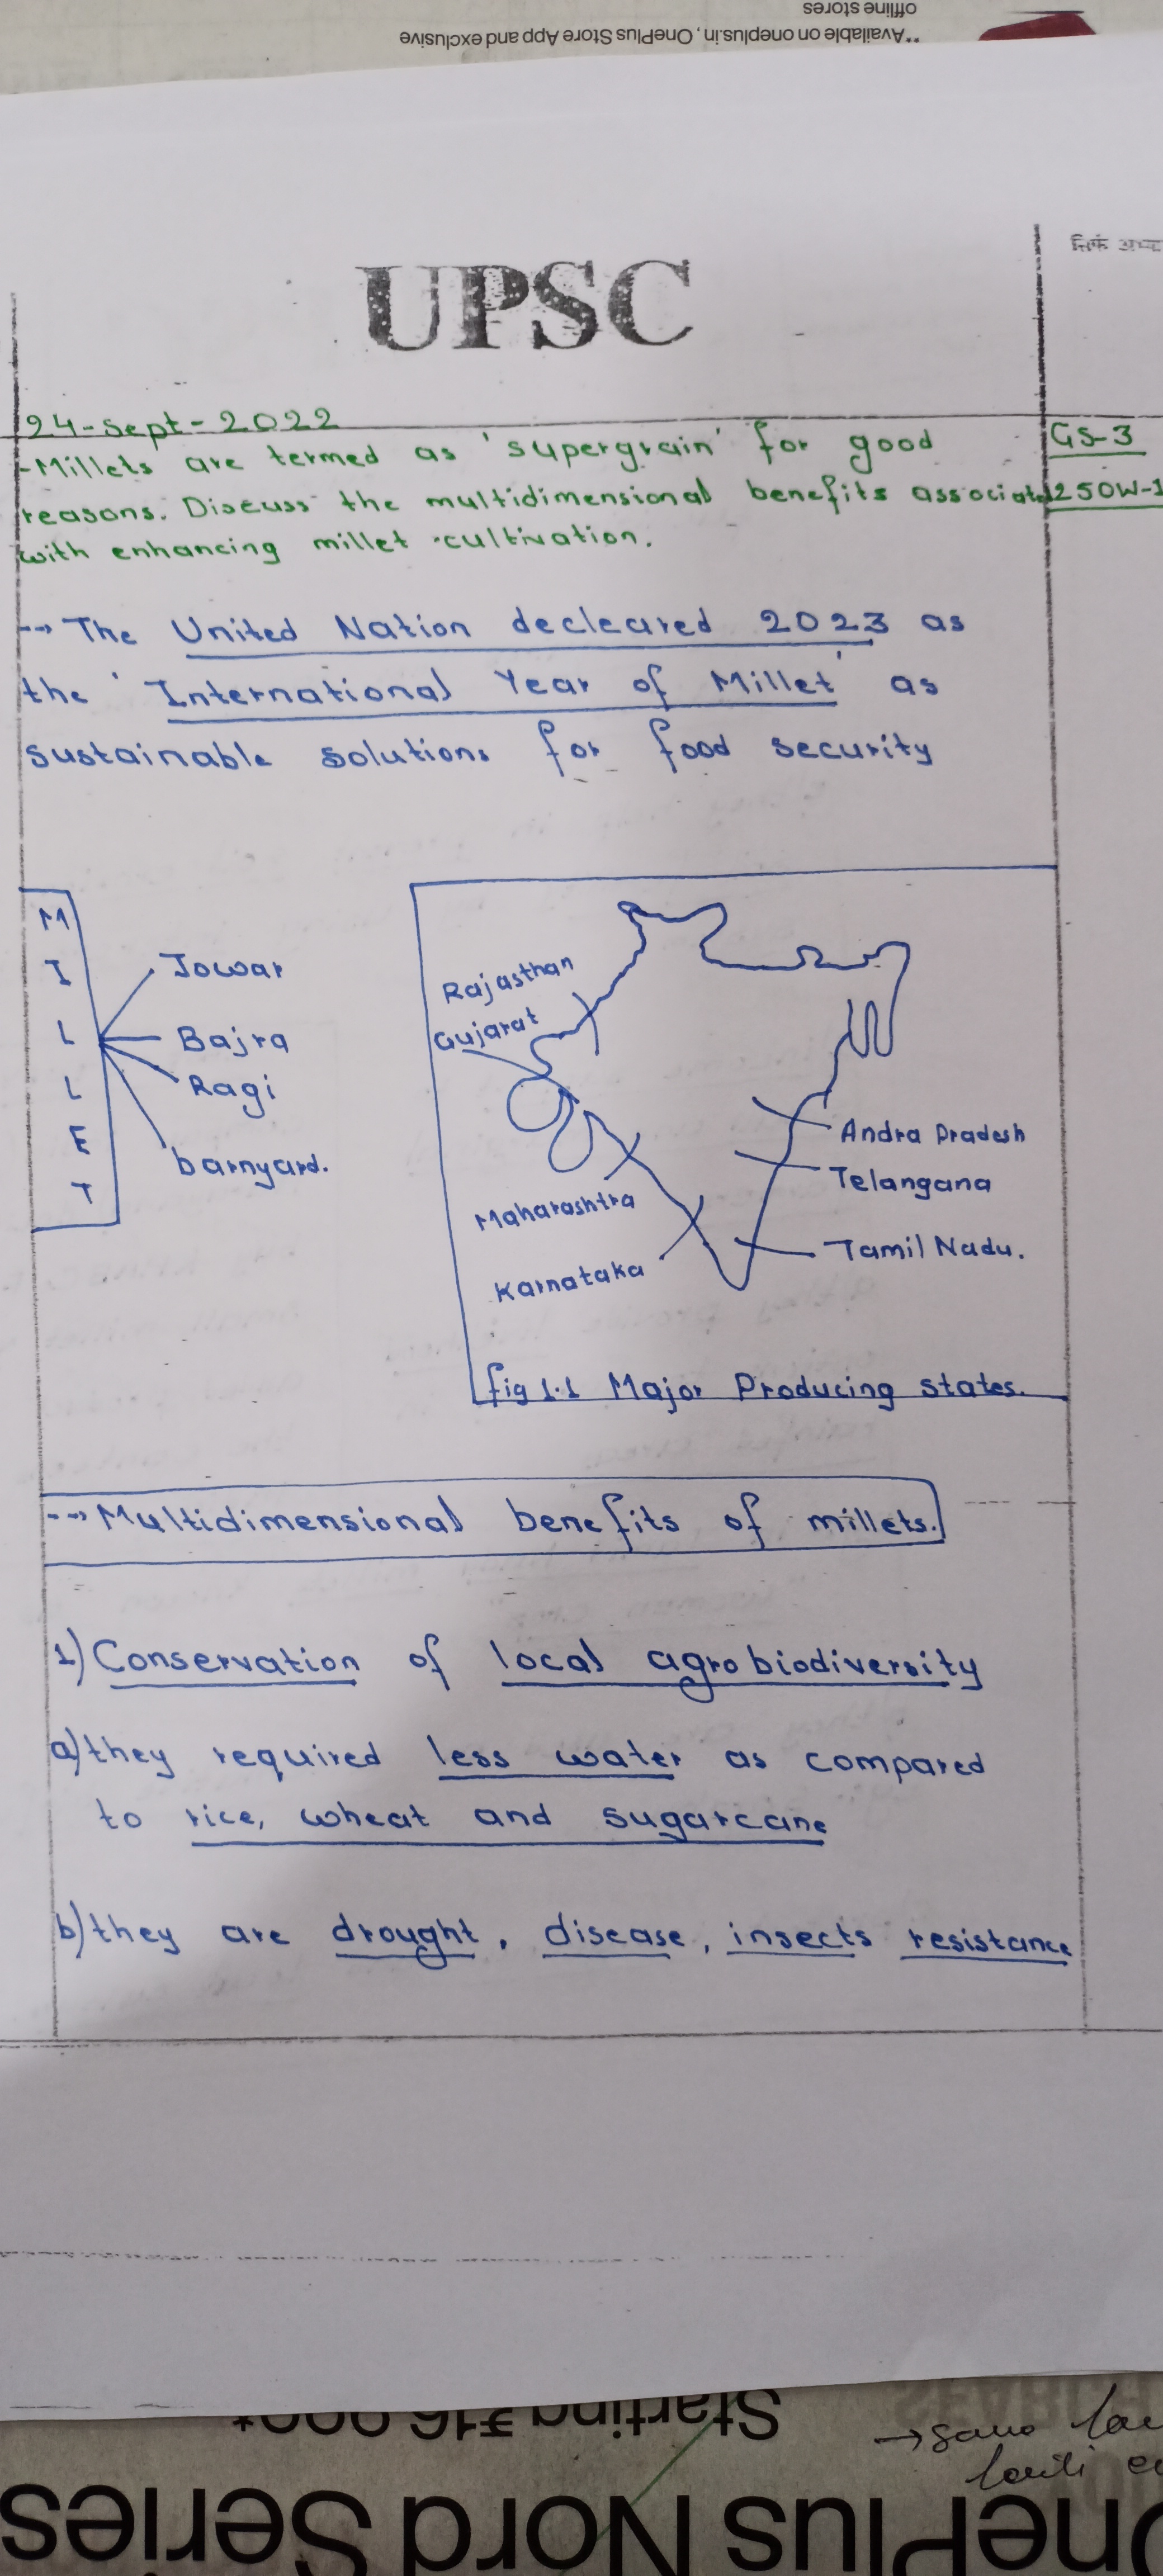 offline stores
**Available on oneplus.in, OnePlus Store App and exclusive
UPSC
24-sept-2022
GS-3
-Millets are termed as 'supergrain' for good
reasons. Discuss the multidimensional benefits associated 250W-1
with enhancing millet cultivation.
--> The United Nation decleared 2023 as
the 'International Year of Millet' as
sustainable solutions for food security
MILLET
Jowar
Bajra
Ragi
barnyard.
Rajasthan
Gujarat
Maharashtra
Karnataka
Andra Pradesh
Telangana
Tamil Nadu.
fig 1.1 Major Producing states.
--> Multidimensional benefits of millets.
1) Conservation of local agrobiodiversity
a) they required less water as compared
to rice, wheat and sugarcane
b) they are drought, disease, insects resistance
Starting ₹16,999*
OnePlus Nord Series